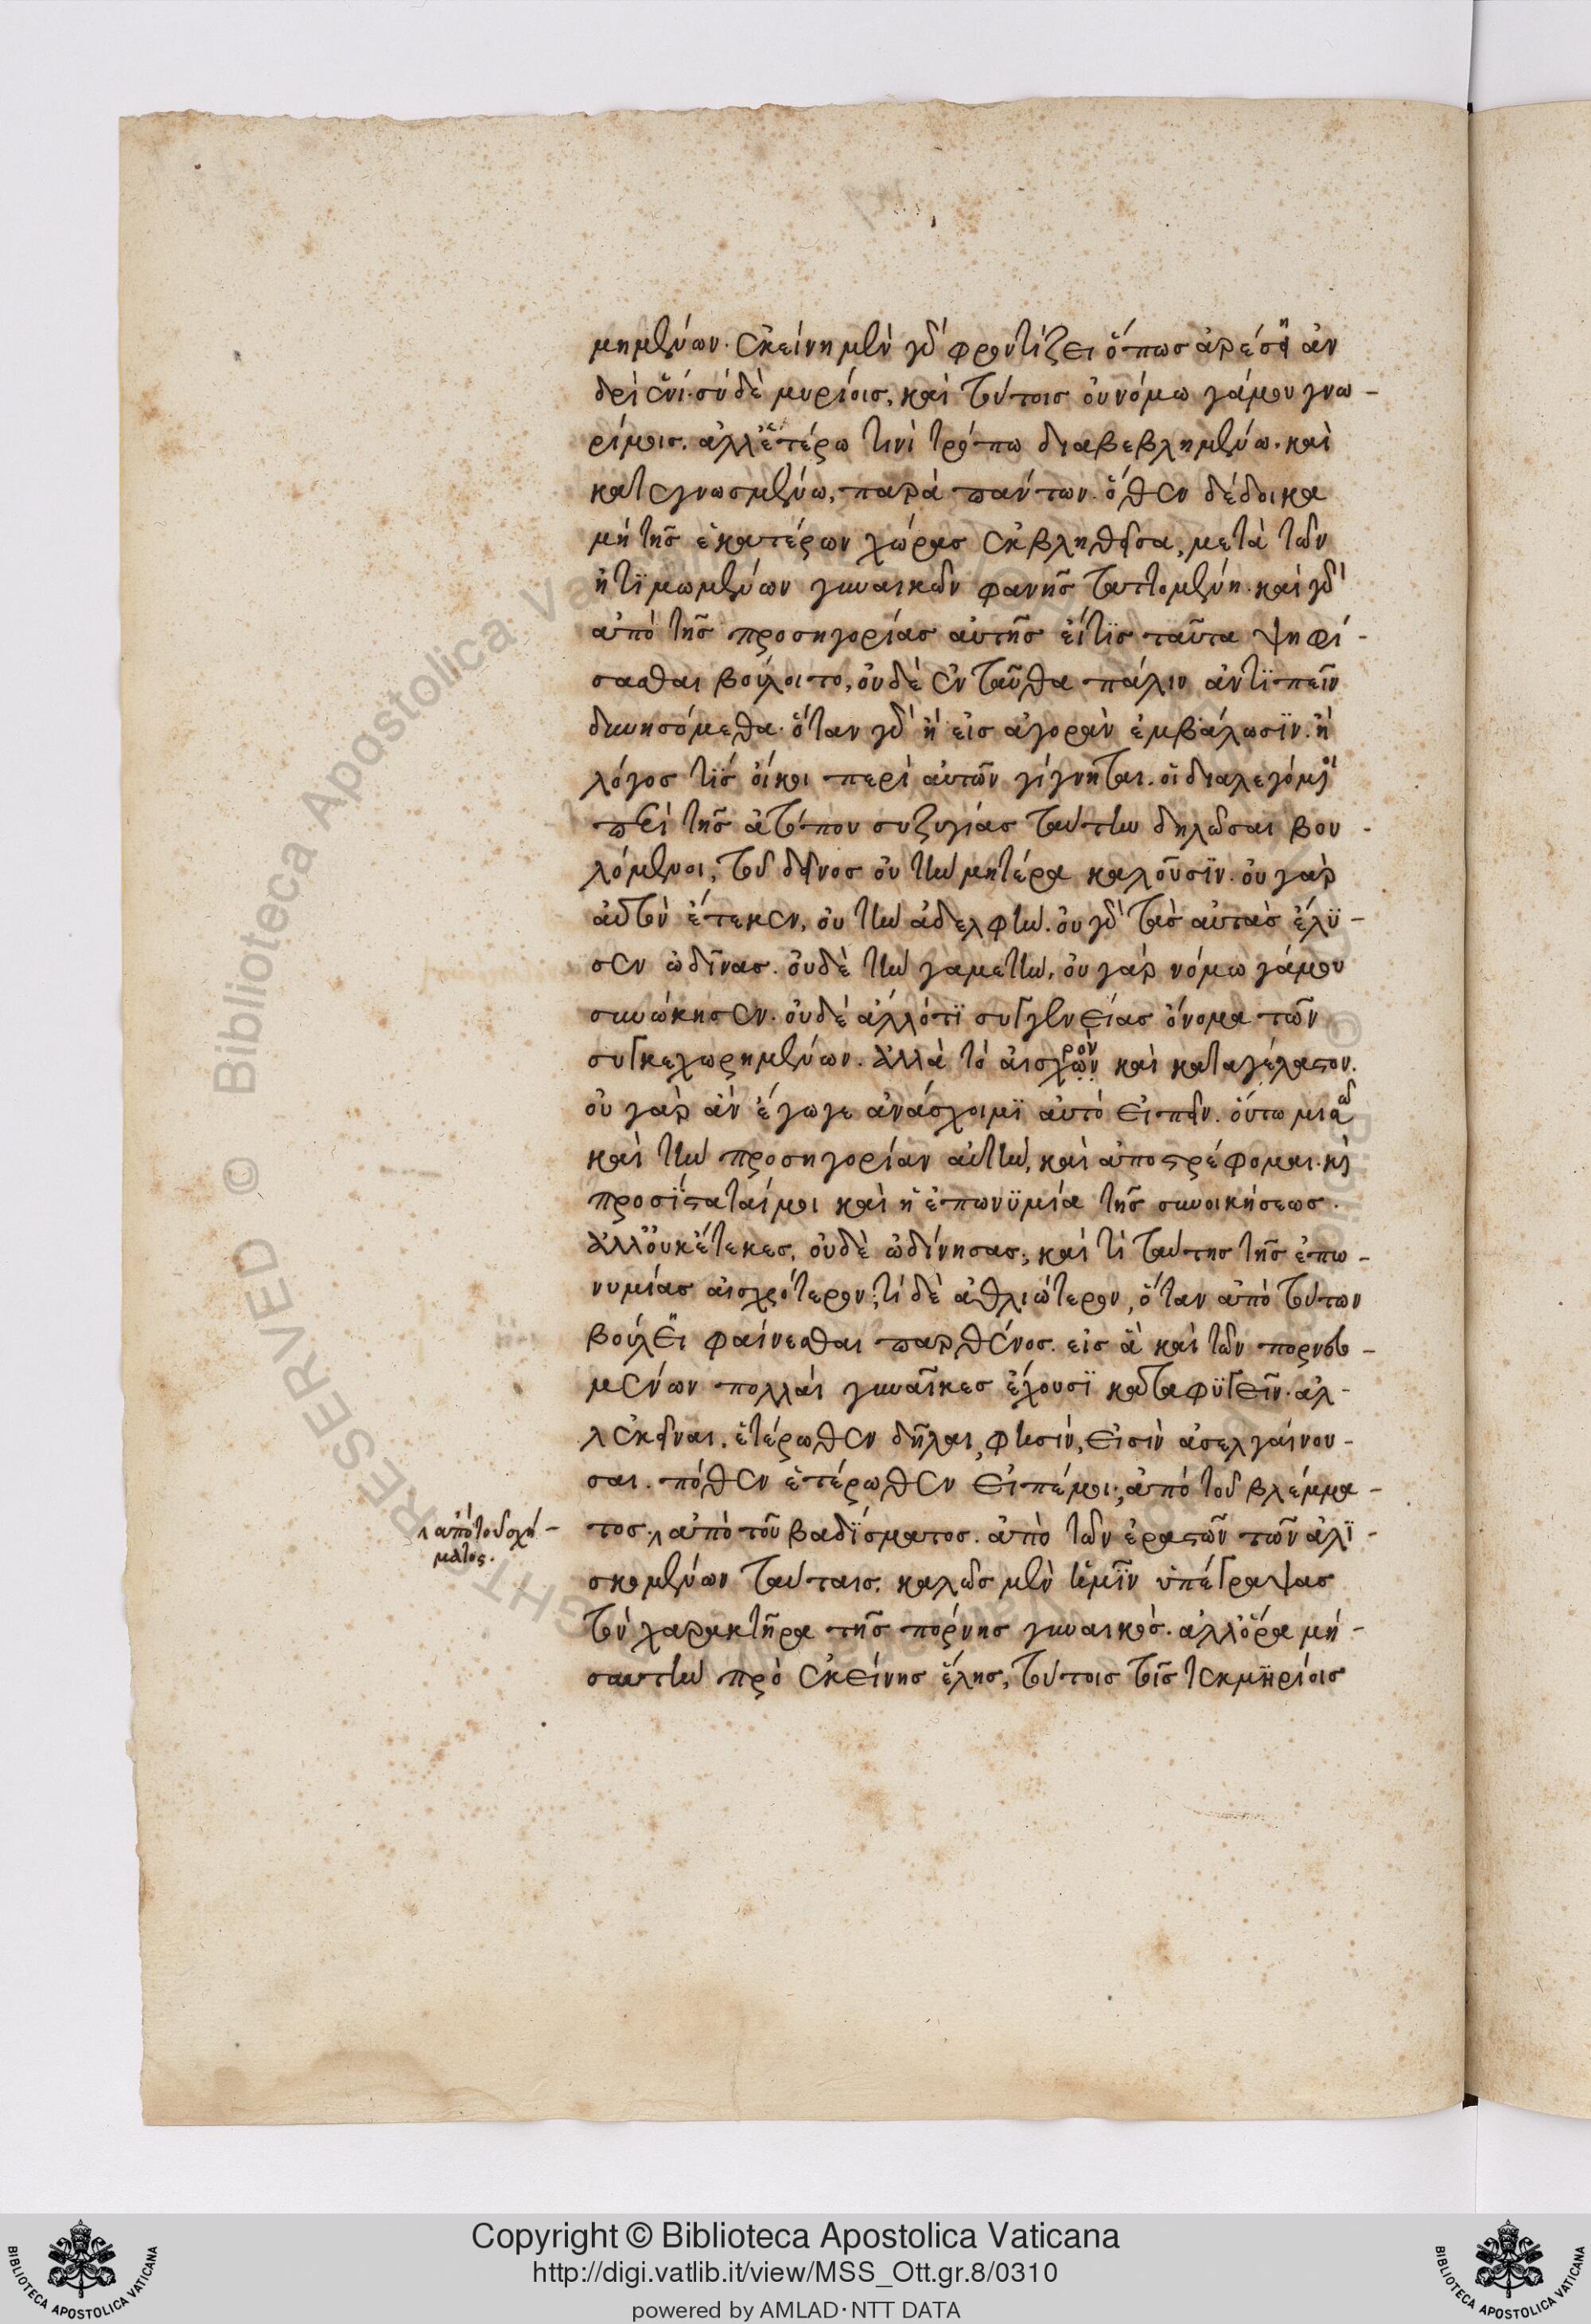 μημένων. ἐκείνη μὲν γὰρ φροντίζει ὅπως ἀρέσῃ ἀν
δρὶ ἑνί. σὺ δὲ μυρίοις. καὶ τούτοις οὐ νόμω γάμου γνω-
ρίμοις. ἀλλ' ἑτέρω τινὶ τρόπω διαβεβλημένω. καὶ
κατεγνωσμένω, παρὰ πάντων. ὅθεν δέδοικα
μὴ τῆς ἑκατέρων χώρας ἐκβληθεῖσα, μετὰ τῶν
ἠτιμωμένων γυναικῶν φανῆς ταττομένη. καὶ γὰρ
ἀπὸ τῆς προσηγορίας αὐτῆς εἴ τις ταῦτα ψηφί-
σασθαι βούλοιτο, οὐδὲ ἐνταῦθα πάλιν ἀντιπεῖν
δυνησόμεθα. ὅταν γὰρ ἢ εἰς ἀγορὰν ἐμβάλωσιν. ἢ
λόγος τίς οἴκοι περὶ αὐτῶν γίγνηται. οἱ διαλεγόμενοι
περὶ τῆς ἀτόπου συζυγίας ταύτην δηλῶσαι βου-
λόμενοι, τοῦ δεῖνος οὐ τὴν μητέρα καλοῦσιν. οὐ γὰρ
αὐτὸν ἔτεκεν, οὐ τὴν ἀδελφήν. οὐ γὰρ τὰς αὐτὰς ἔλυ-
σεν ὠδῖνας. οὐδὲ τὴν γαμετήν, οὐ γὰρ νόμω γάμου
συνώκησεν. οὐδὲ ἄλλό τι συγγενείας ὄνομα τῶν
συγκεχωρημένων. ἀλλὰ τὸ αἰσχρὸν καὶ καταγέλαστον.
οὐ γὰρ ἂν ἔγωγε ἀνάσχοιμι αὐτὸ εἰπεῖν. οὕτω μισῶ
καὶ τὴν προσηγορίαν αὐτήν, καὶ ἀποστρέφομαι. καὶ
προσίσταταί μοι καὶ ἡ ἐπωνυμία τῆς συνοικήσεως.
ἀλλ' οὐκ ἔτεκες, οὐδὲ ὠδίνησας; καὶ τί ταύτης τῆς ἐπω-
νυμίας αἰσχρότερον; τί δὲ ἀθλιώτερον, ὅταν ἀπὸ τούτων
βούλει φαίνεσθαι παρθένος. εἰς ἃ καὶ τῶν πορνευο-
μένων πολλαὶ γυναῖκες ἔχουσι καταφυγεῖν. ἀλ-
λ' ἐκεῖναι. ἑτέρωθεν δῆλαι, φησίν, εἰσὶν ἀσελγαίνου-
σαι. πόθεν ἑτέρωθεν εἰπέ μοι; ἀπὸ τοῦ βλέμμα-
ἀπὸ τοῦ σχή-
ματος.
τος. ἀπὸ τοῦ βαδίσματος. ἀπὸ τῶν ἐραστῶν τῶν ἁλι-
σκομένων ταύταις. καλῶς μὲν ἡμῖν ὑπέγραψας
τὸν χαρακτῆρα τῆς πόρνης γυναικός. ἀλλ' ὅρα μὴ-
σαυτὴν πρὸ ἐκείνης ἕλης, τούτοις τοῖς τεκμηρίοις
Copyright © Biblioteca Apostolica Vaticana
http://digi.vatlib.it/view/MSS_Ott.gr.8/0310
powered by AMLAD·NTT DATA